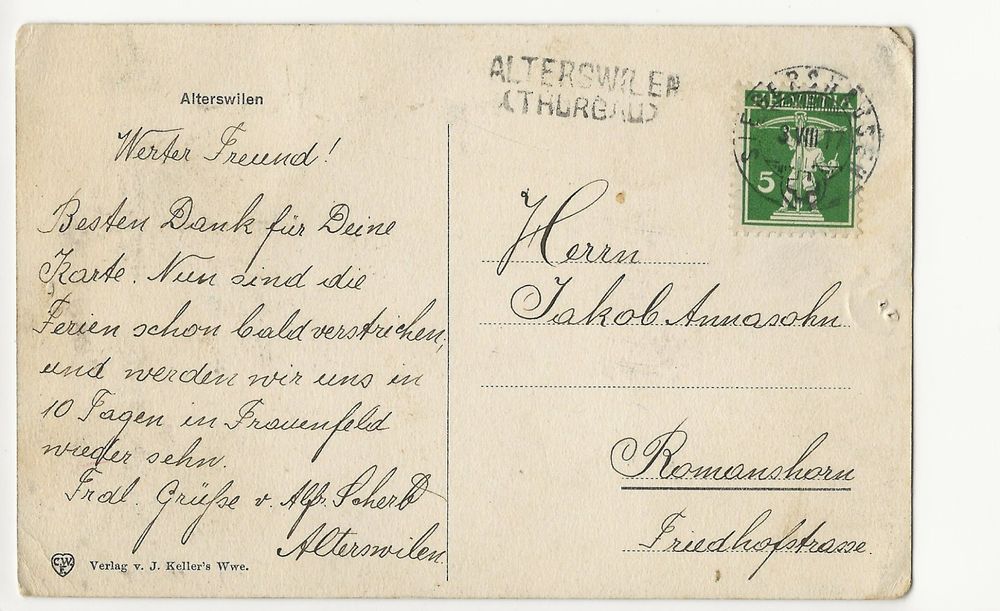 Alterswilen
Werter Freund!
Besten Dank für Deine
Karte. Nun sind die
Ferien schon bald verstrichen,
und werden wir uns in
10 Tagen in Frauenfeld
wieder sehn.
Frdl. Grüße v. Alfr. Scherb
Alterswilen.
C.W.F.
Verlag v. J. Keller's Wwe.
ALTERSWILEN
(THURGAU)
HELVETIA
5
SIEGERSHAUSEN
3 VIII 11
Herrn
Jakob Annasohn
Romanshorn
Friedhofstrasse.